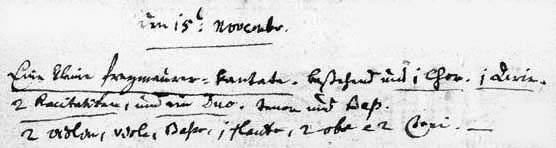 den 15:t Novembr.
Eine kleine freymaurer=kantate. bestehend aus 1 Chor. 1 Arie.
2 Recitativen, und ein Duo. tenor und Bass.
2 violini, viola, Basso, 1 flauto, 2 oboe e 2 Corni. —